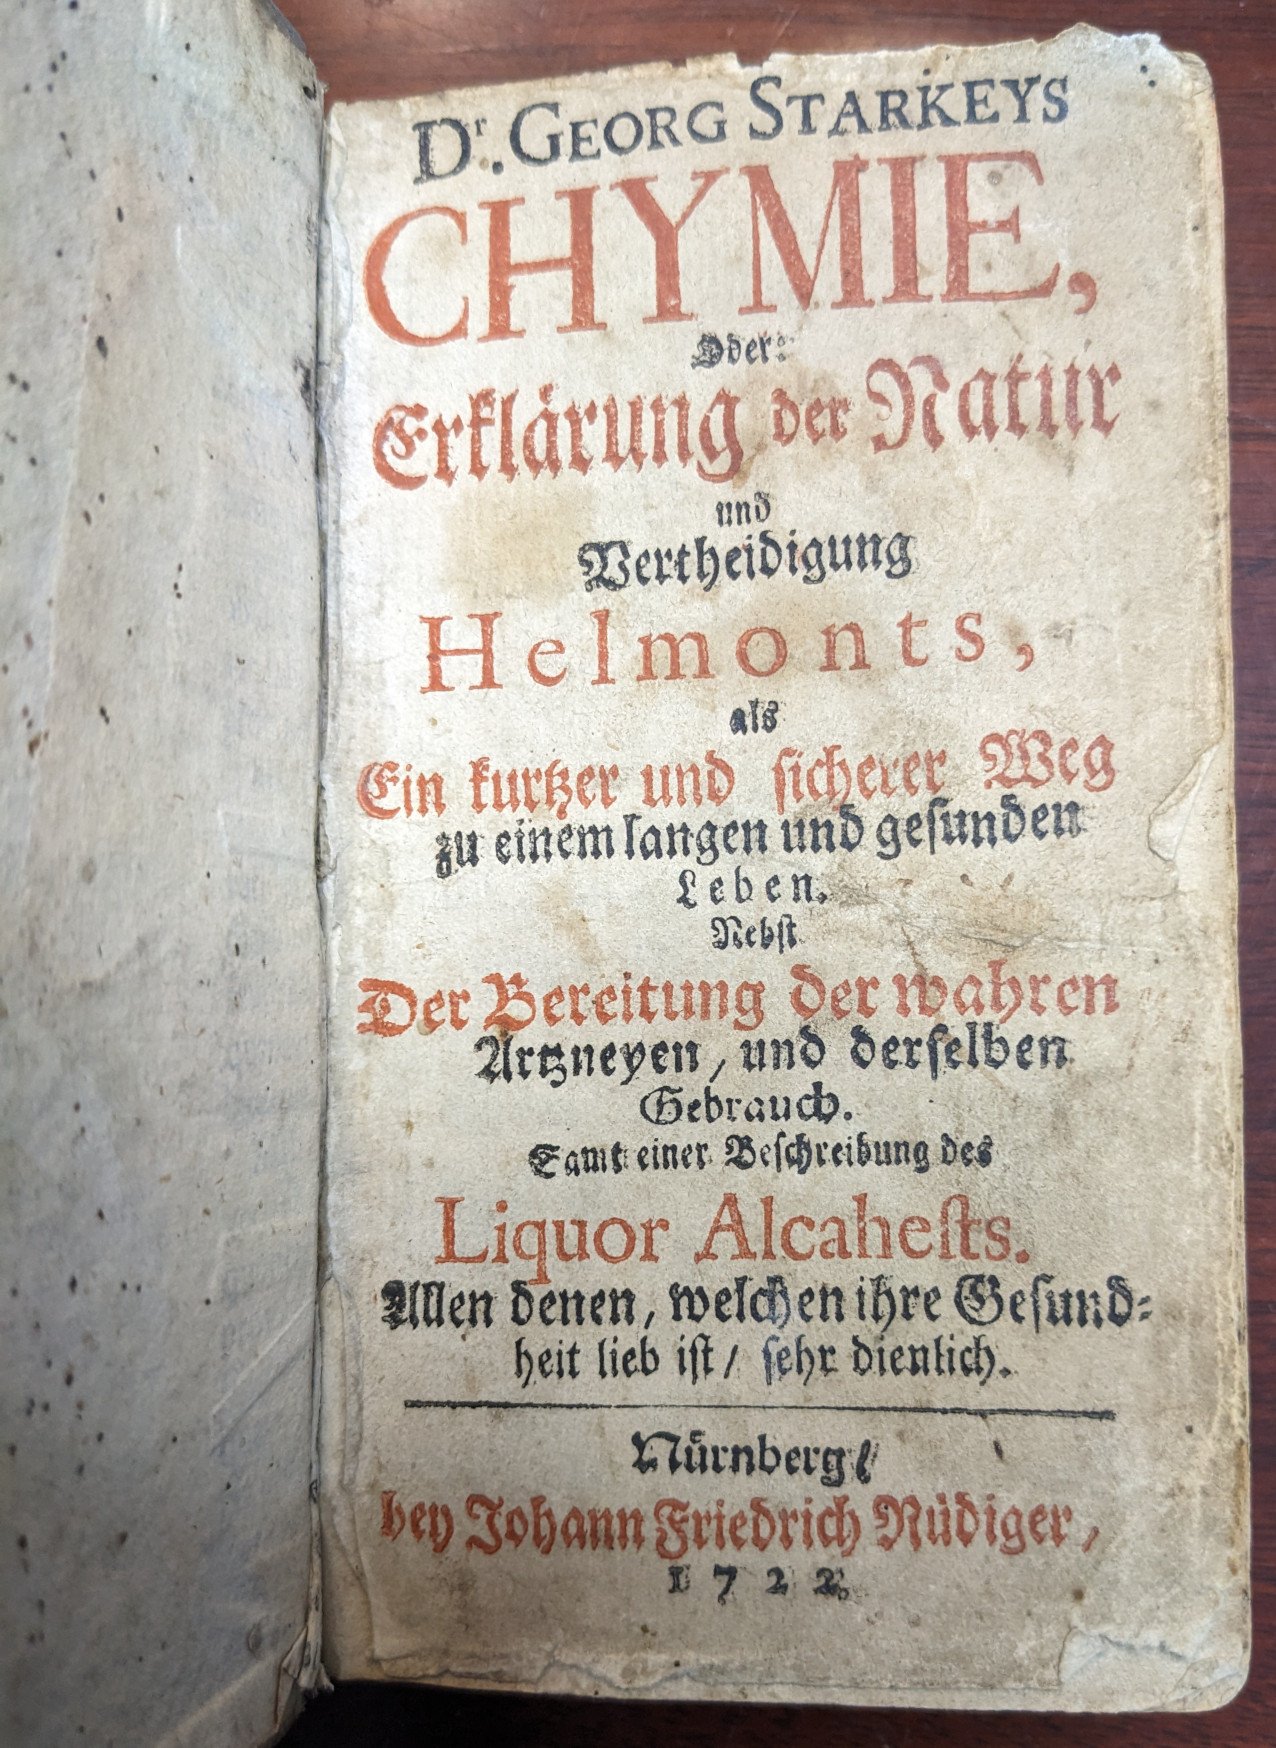 Dr. GEORG STARKEYS
CHYMIE,
Oder:
Erklärung der Natur
und
Vertheidigung
Helmonts,
als
Ein kurtzer und ſicherer Weg
zu einem langen und geſunden
Leben.
Nebſt
Der Bereitung der wahren
Artzneyen, und derſelben
Gebrauch.
Samt einer Beſchreibung des
Liquor Alcaheſts.
Allen denen, welchen ihre Geſund-
heit lieb iſt/ ſehr dienlich.
Nürnberg/
bey Johann Friedrich Rüdiger,
1722.